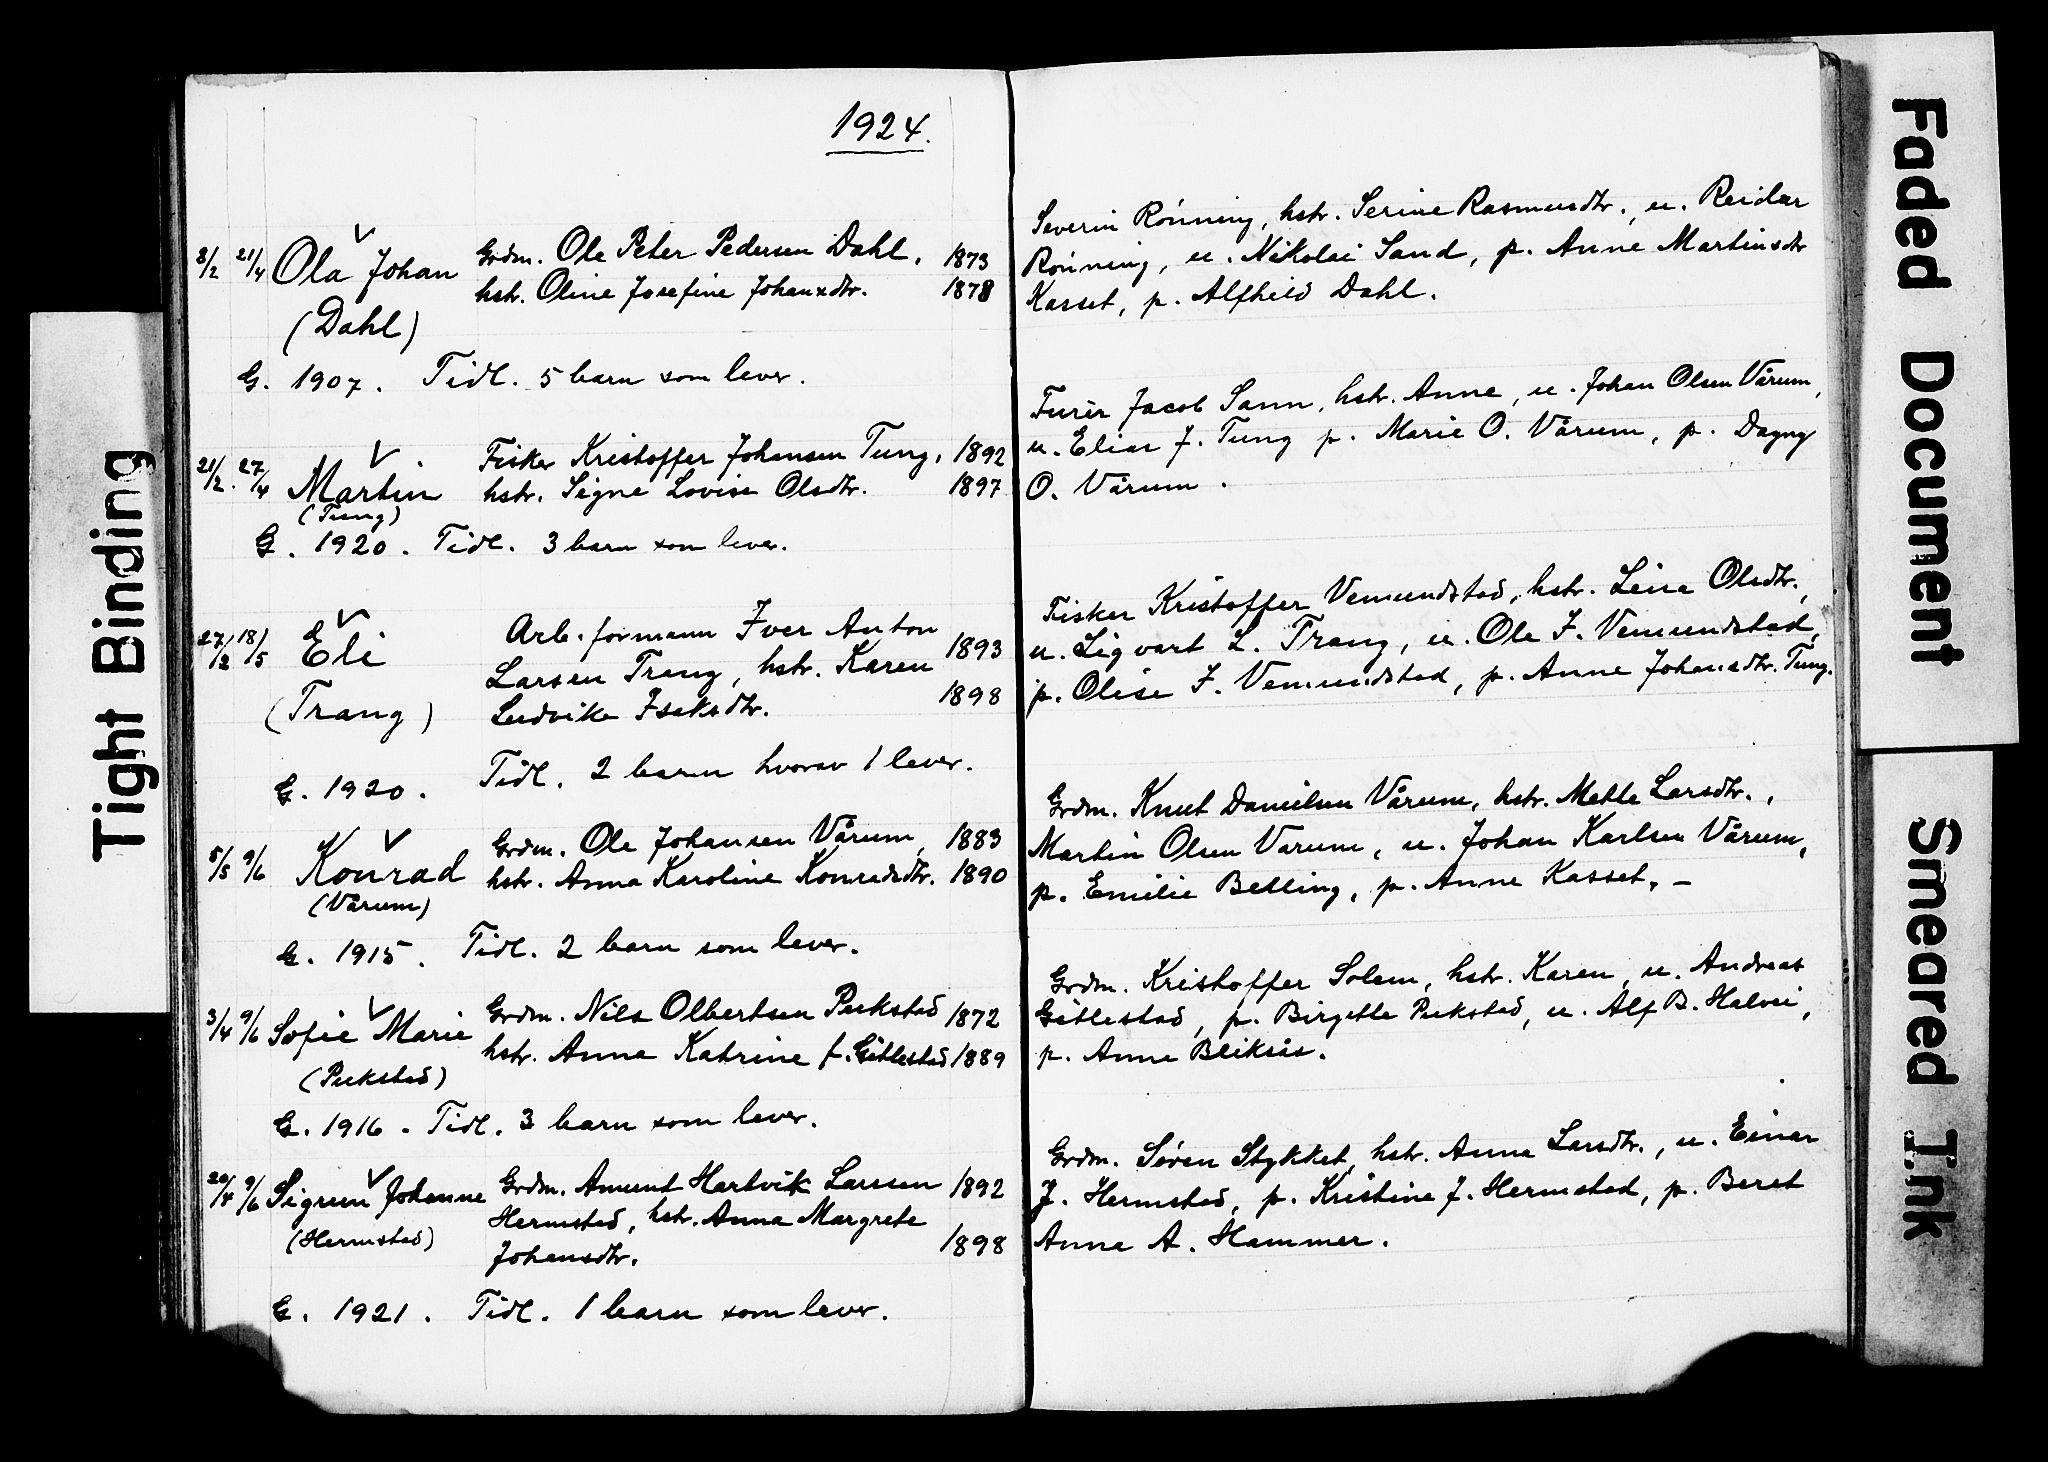 1924.
8/2 21/4 Ola Johan Grdm. Ole Peter Pedersen Dahl. 1873
hstr. Oline Josefine Johansdtr. 1878
(Dahl)
G. 1907. Tidl. 5 barn som lever.
21/2. 27/4 Martin Fisker Kristoffer Johansen Tung, 1892
hstr. Signe Lovise Olsdtr. 1897
(Tung)
G. 1920. Tidl. 3 barn som lever.
27/2 18/5 Eli Arb.formann Iver Anton 1893
Larsen Trang, hstr. Karen
(Trang) Ludvike Isaksdtr. 1898
G. 1920. Tidl. 2 barn hvorav 1 lever.
5/5 9/6 Konrad Grdm. Ole Johansen Vårum, 1883
hstr. Anna Karoline Konradsdtr. 1890
(Vårum)
G. 1915. Tidl. 2 barn som lever.
3/4 9/6 Sofie Marie Grdm. Nils Olbertsen Pukstad 1872
hstr. Anna Katrine f. Gitlestad 1889
(Pukstad)
G. 1916. Tidl. 3 barn som lever.
20/4 9/6 Sigrun Johanne Grdm. Amunt Hartvik Larssen 1892
(Hermstad) Hermstad, hstr. Anna Margrete
Johansdtr. 1898
G. 1921. Tidl. 1 barn som lever.
Severin Rønning, hstr. Serine Rasmusdtr., u. Reidar
Rønning, u. Nikolai Sand, p. Anne Martinsdtr
Kasset, p. Alfhild Dahl.
Furér Jacob Sann, hstr. Anne, u. Johan Olsen Vårum,
u. Elias J. Tung p. Marie O. Vårum, p. Dagny
O. Vårum.
Fisker Kristoffer Vemundstad, hstr. Lina Olsdtr.,
u. Sigvart L. Trang, u. Ole I. Vemundstad,
p. Olise I. Vemundstad, p. Anne Johansdtr. Tung.
Grdm. Knut Danielsen Vårum, hstr. Mette Larsdtr.,
Martin Olsen Vårum, u. Johan Karlsen Vårum,
p. Emilie Belling, p. Anne Kasset. –
Grdm. Kristoffer Solem, hstr. Karen, u. Andreas
Gitlestad, p. Birgitte Pukstad, u. Alf B. Halsei,
p. Anne Bliksås.
Grdm. Søren Stykket, hstr. Anna Larsdtr., u. Einar
J. Hermstad, p. Kristine J. Hermstad, p. Beret
Anna A. Hammer.
Tight Binding
Faded Document
Smeared Ink